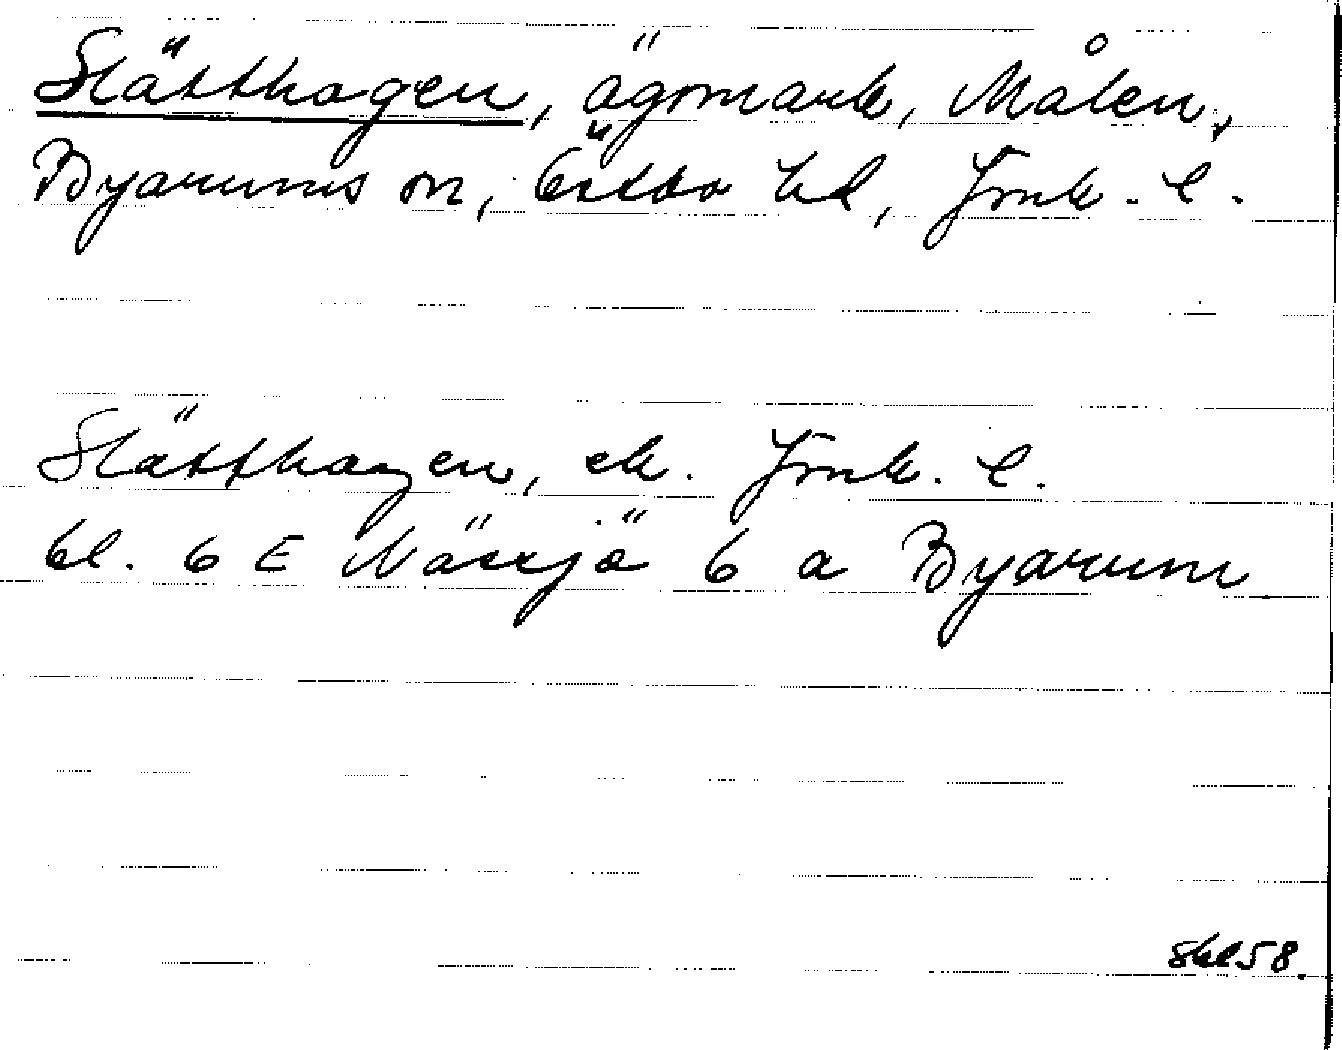 Slätthagen, ägomark, Målen,
Byarums sn, Östbo hd, Jönk. l.
Slätthagen, ek. Jönk. l.
bl. 6 E Nässjö 6 a Byarum